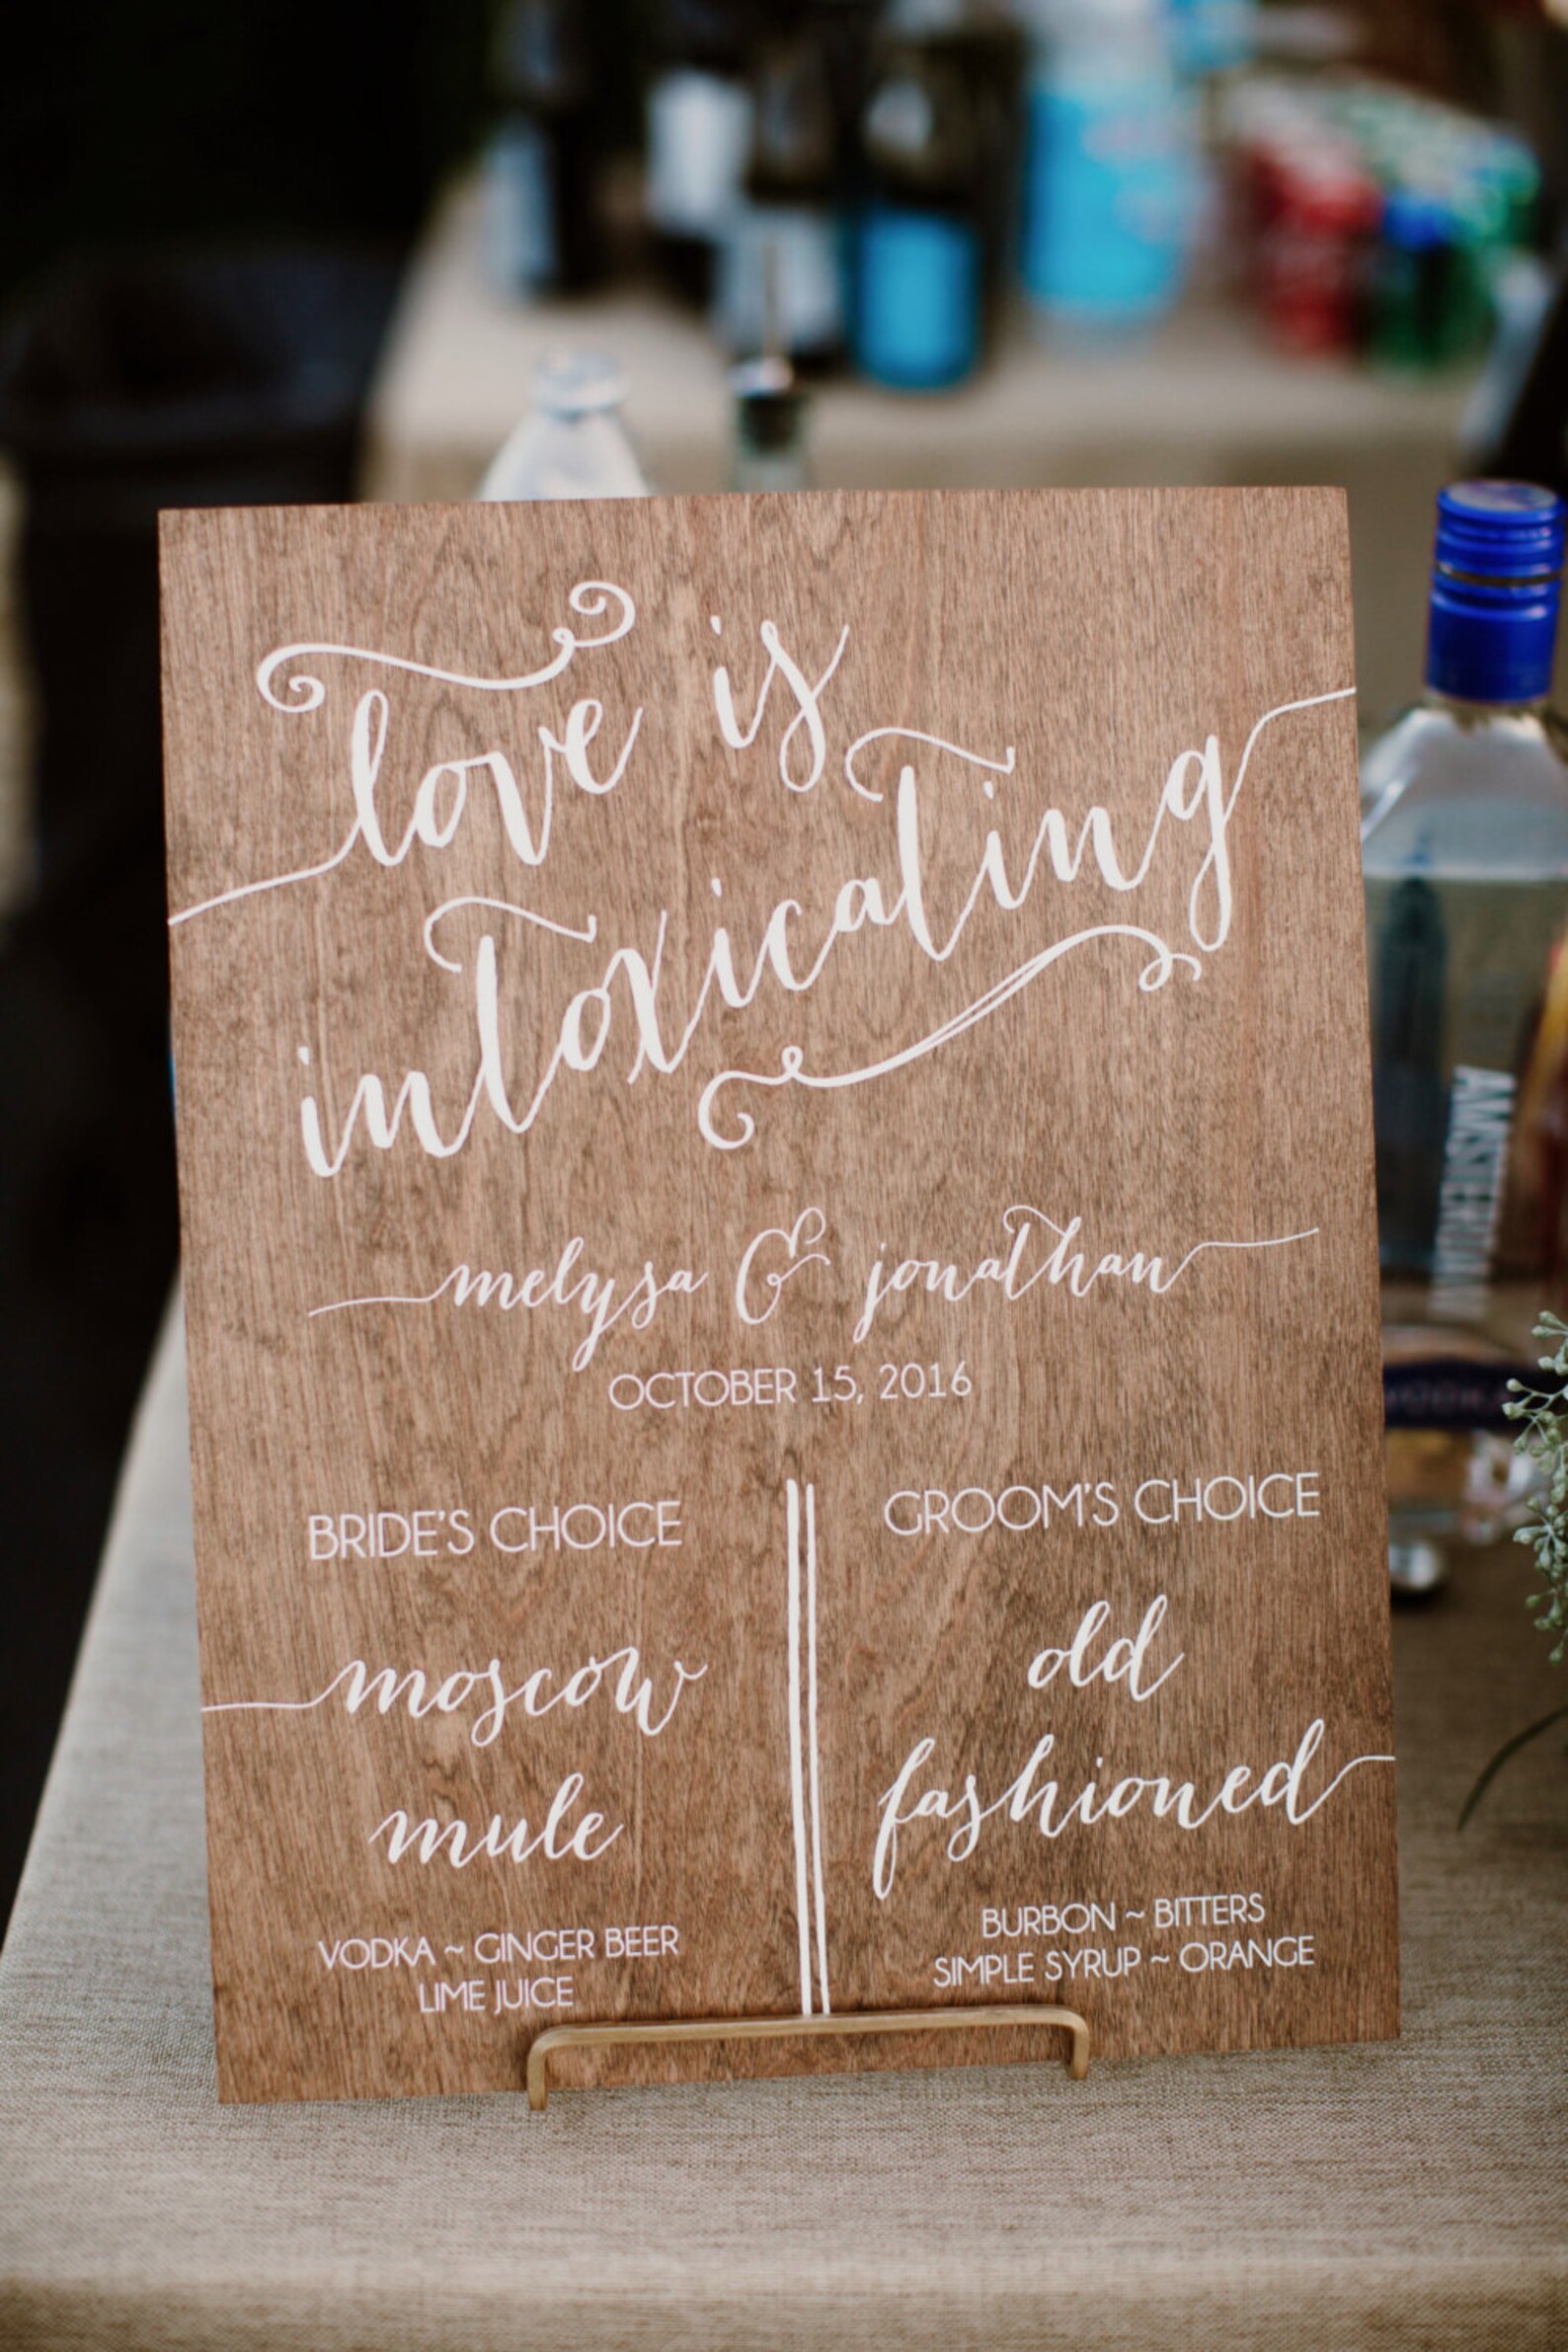 love is
intoxicating
melysa & jonathan
OCTOBER 15, 2016
BRIDE'S CHOICE
moscow
mule
VODKA ~ GINGER BEER
LIME JUICE
GROOM'S CHOICE
old
fashioned
BURBON ~ BITTERS
SIMPLE SYRUP ~ ORANGE
AMSTERDAM
VODKA